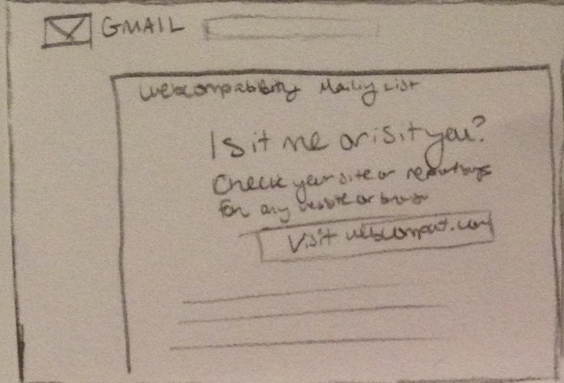 GMAIL
Webcompatibility Mailing List
Is it me or is it you?
Check your site or report bugs
for any website or browser
Visit webcompat.com